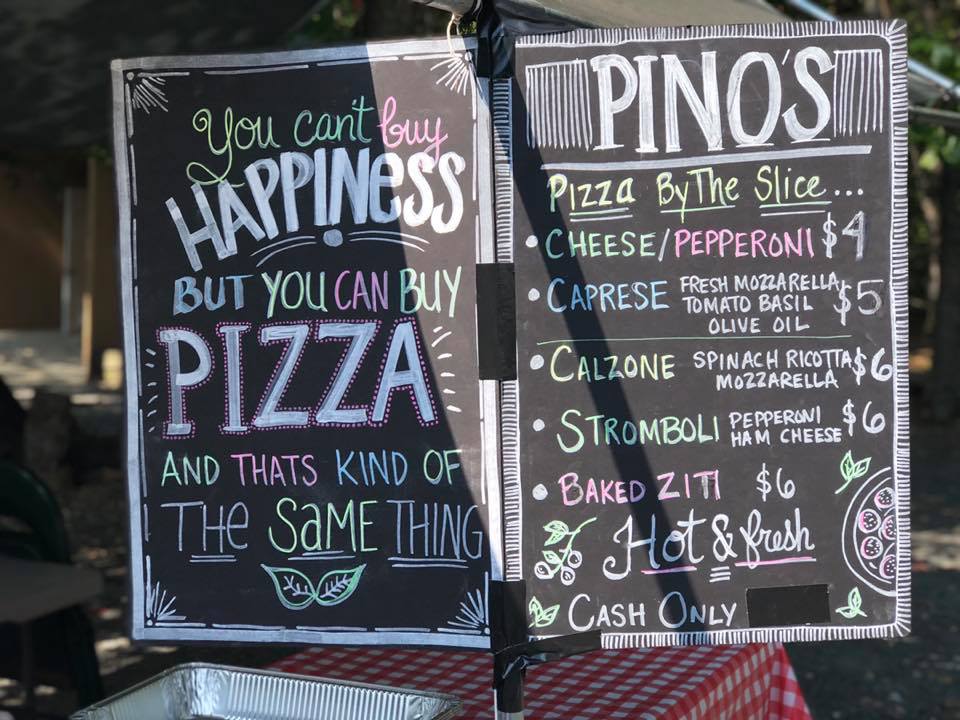 You can't buy
HAPPINESS
BUT YOU CAN BUY
PIZZA
AND THATS KIND OF
THE SAME THING
PINO'S
Pizza By The Slice...
• CHEESE/PEPPERONI $4
• CAPRESE FRESH MOZZARELLA, $5
TOMATO BASIL
OLIVE OIL
• CALZONE SPINACH RICOTTA $6
MOZZARELLA
• STROMBOLI PEPPERONI $6
HAM CHEESE
• BAKED ZITI $6
Hot & fresh
CASH ONLY